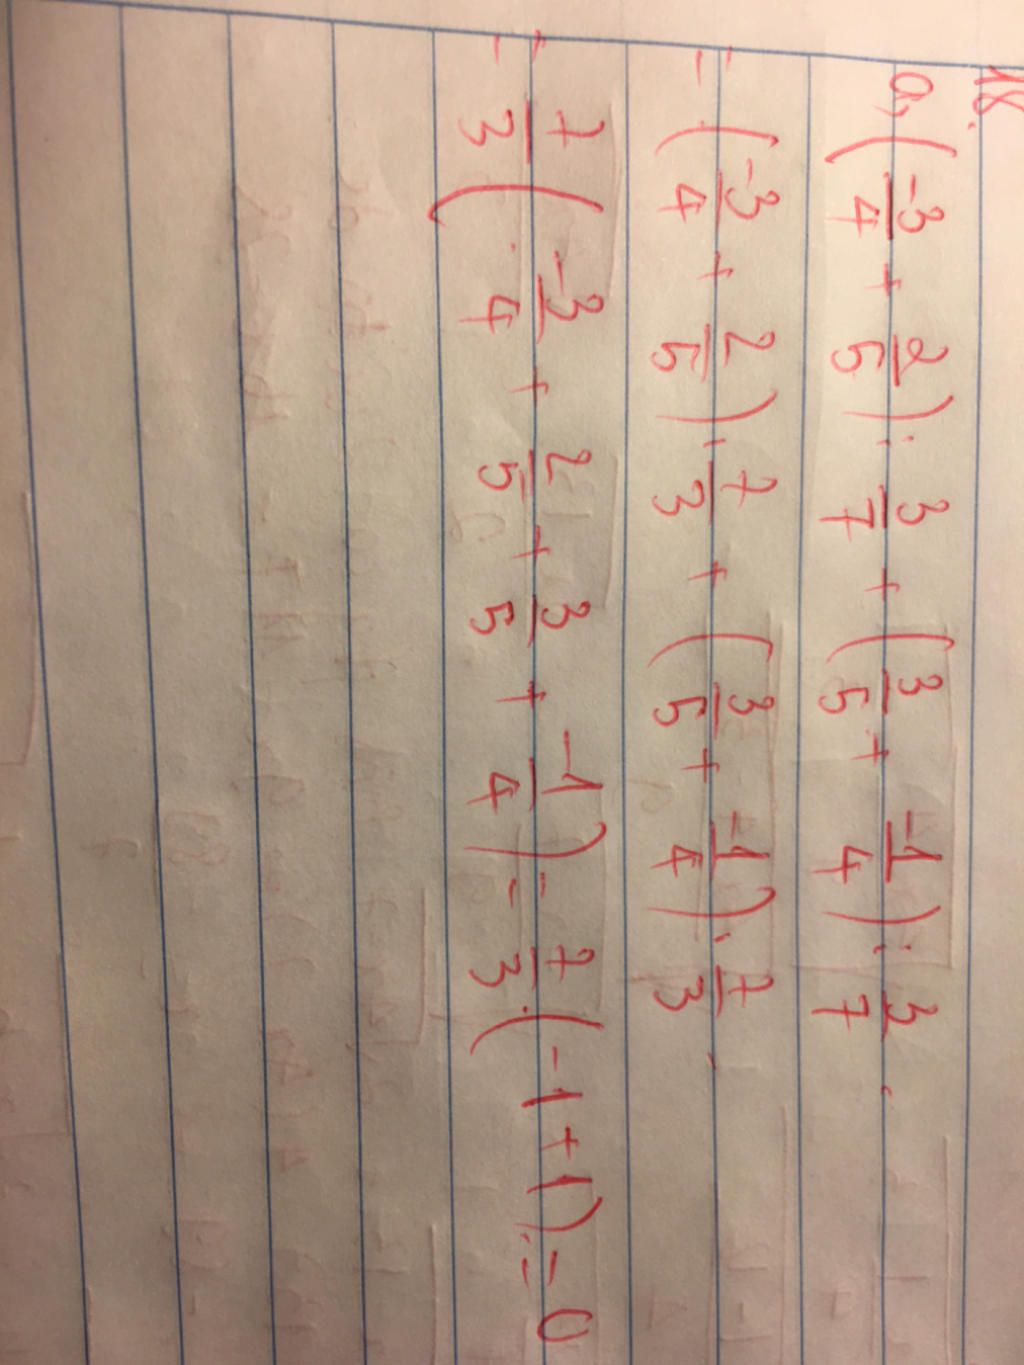 18.
a, (-3/4 + 2/5) : 3/7 + (3/5 + -1/4) : 3/7.
= (-3/4 + 2/5) . 7/3 + (3/5 + -1/4) . 7/3.
= 7/3 (-3/4 + 2/5 + 3/5 + -1/4) = 7/3 . (-1 + 1) = 0